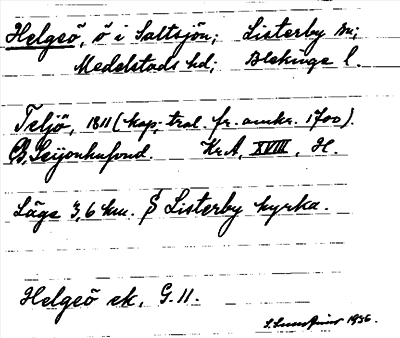 Helgeö, ö i Saltsjön; Listerby sn;
Medelstads hd; Blekinge l.
Teljö, 1811 (kop; tral. fr. omkr. 1700).
Kr.A, XVIII, H.
Läge 3,6 km. S Listerby kyrka.
Helgeö ek. G. 11.
1936.